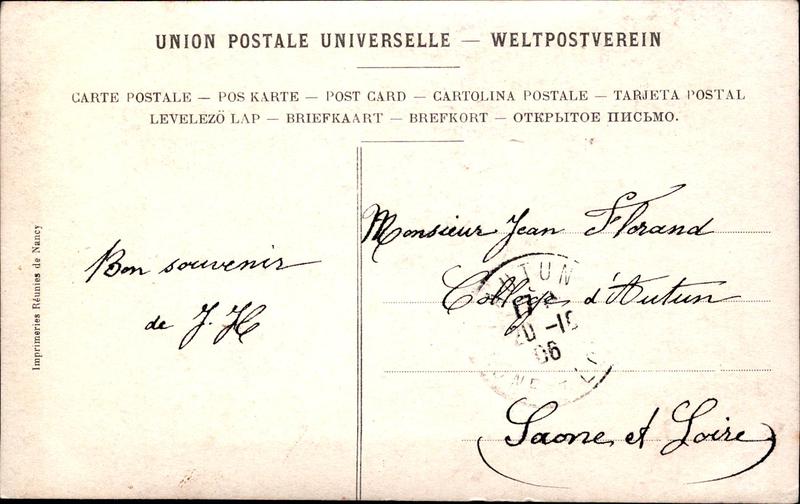 UNION POSTALE UNIVERSELLE — WELTPOSTVEREIN
CARTE POSTALE — POS KARTE — POST CARD — CARTOLINA POSTALE — TARJETA POSTAL
LEVELEZÖ LAP — BRIEFKAART — BREFKORT — ОТКРЫТОЕ ПИСЬМО.
Imprimeries Réunies de Nancy
Bon souvenir
de J. H
Monsieur Jean Florand
Collège d'Autun
Saone et Loire
AUTUN
20 -10
06